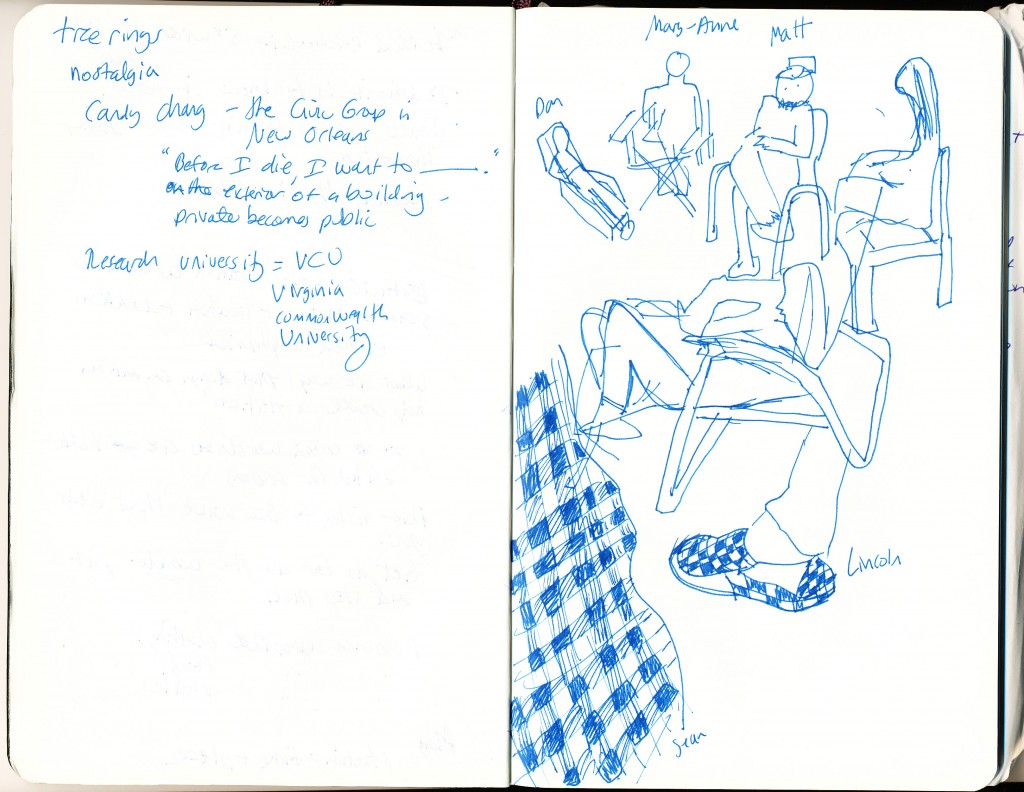 tree rings
nostalgia
Candy Chang - the Civic Group in
New Orleans
"Before I die, I want to ______."
on the exterior of a building -
private becomes public
Research university = VCU
Virginia
commonwealth
University
Mary-Anne
Matt
Dan
Lincoln
Sean